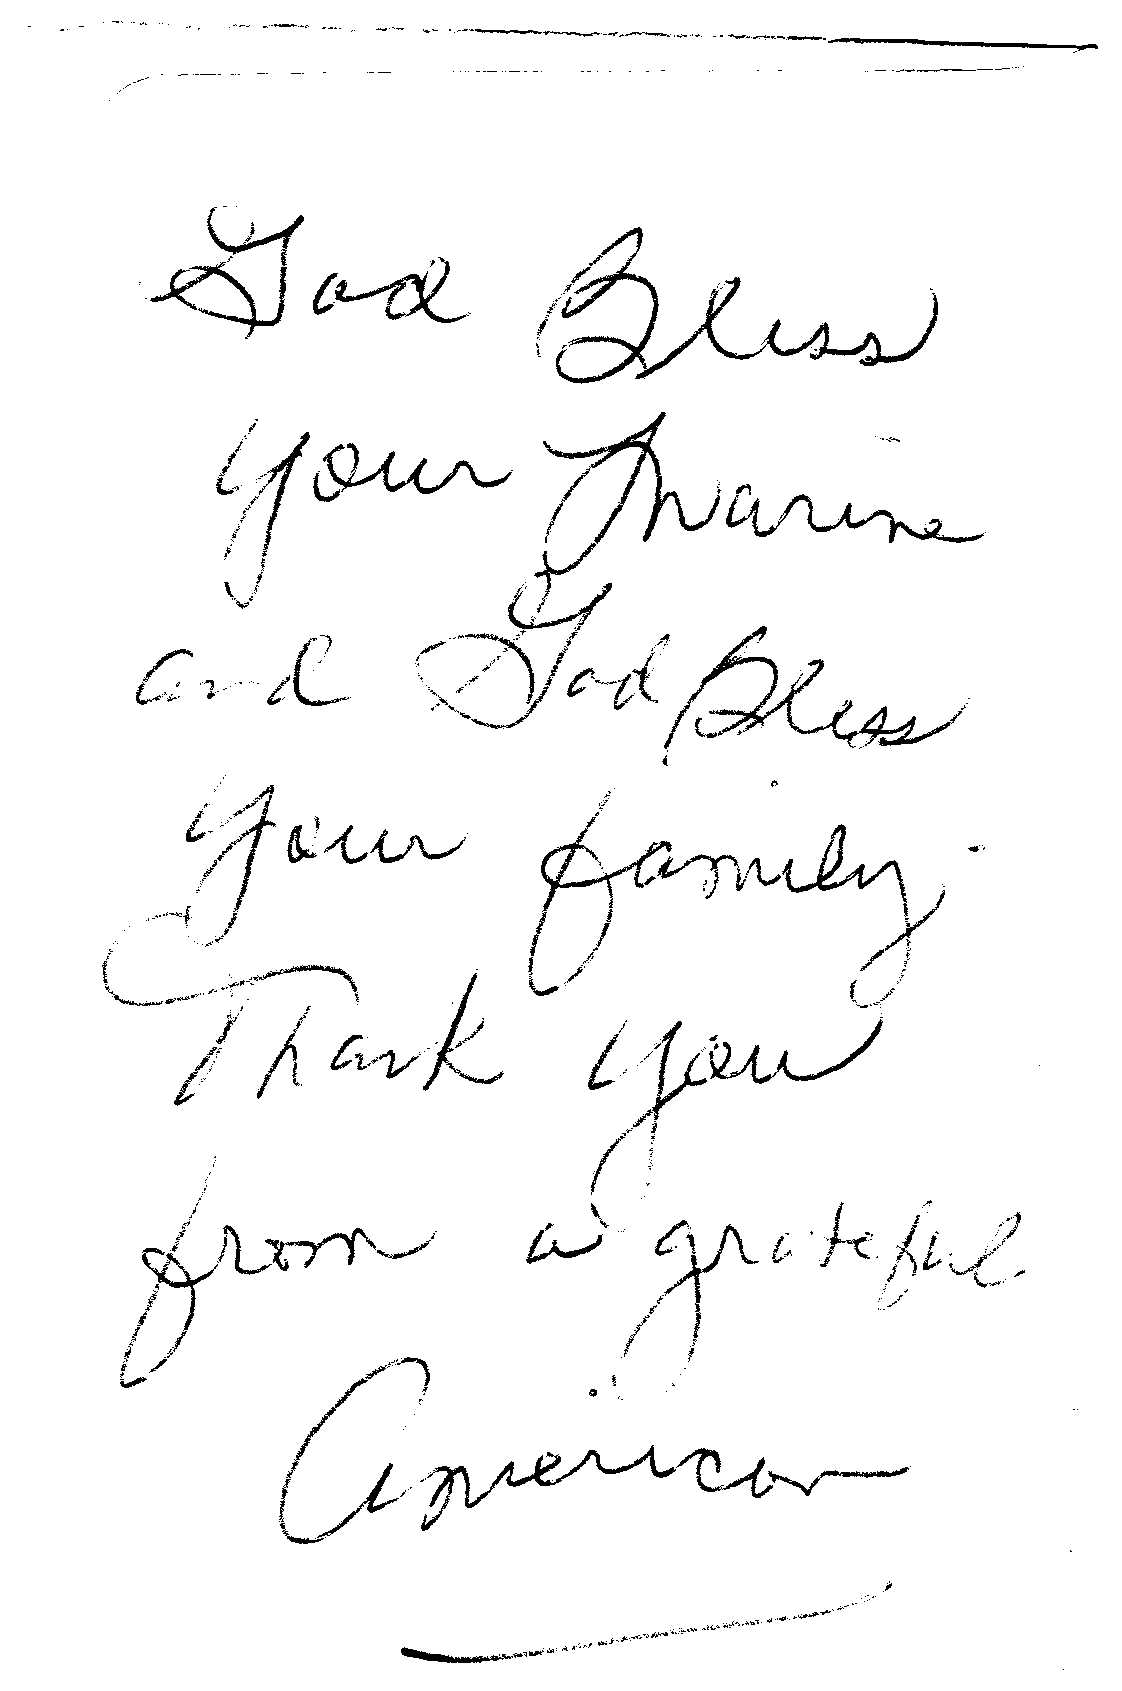 God Bless
your Marine
and God Bless
your family.
Thank you
from a grateful
American